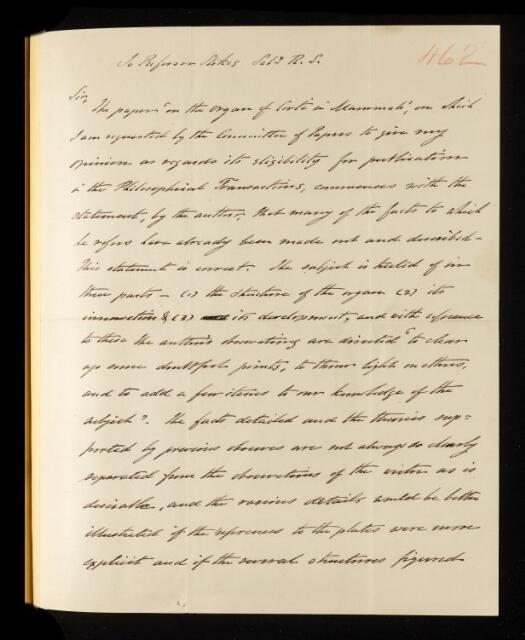 To Professor Stokes Sec? R. S.
462
Sir,
The paper "on the organ of Corti in Mammals", on which
I am requested by the Committee of Papers to give my
opinion as regards its eligibility for publication
in the Philosophical Transactions, commences with the
statement, by the author, that many of the facts to which
he refers have already been made out and described –
this statement is correct. The subject is treated of in
three parts – (1) the structure of the organ (2) its
innervation & (3) its development, and with reference
to these the author's observations are directed "to clear
up some doubtful points, to throw light on others,
and to add a few items to our knowledge of the
subject". The facts detailed and the theories sup=
ported by previous observers are not always so clearly
separated from the observations of the writer as is
desirable, and the various details would be better
illustrated if the references to the plates were more
explicit and if the several structures figured